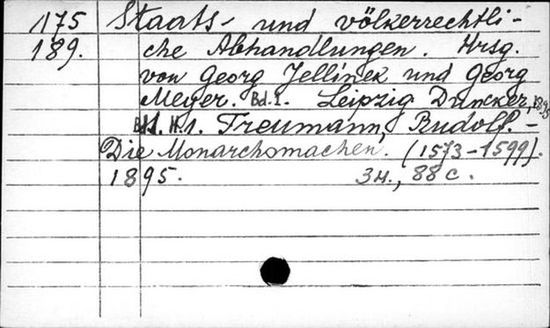 175 Staats- und völkerrechtli-
189. che Abhandlungen. Hrsg.
von Georg Jellinek und Georg
Meyer. Bd. 1. Leipzig Duncker, 1895
Bd. 1. H. 1. Treumann, Rudolf. -
Die Monarchomachen. (1573-1599).
1895. 3 н., 88 с.